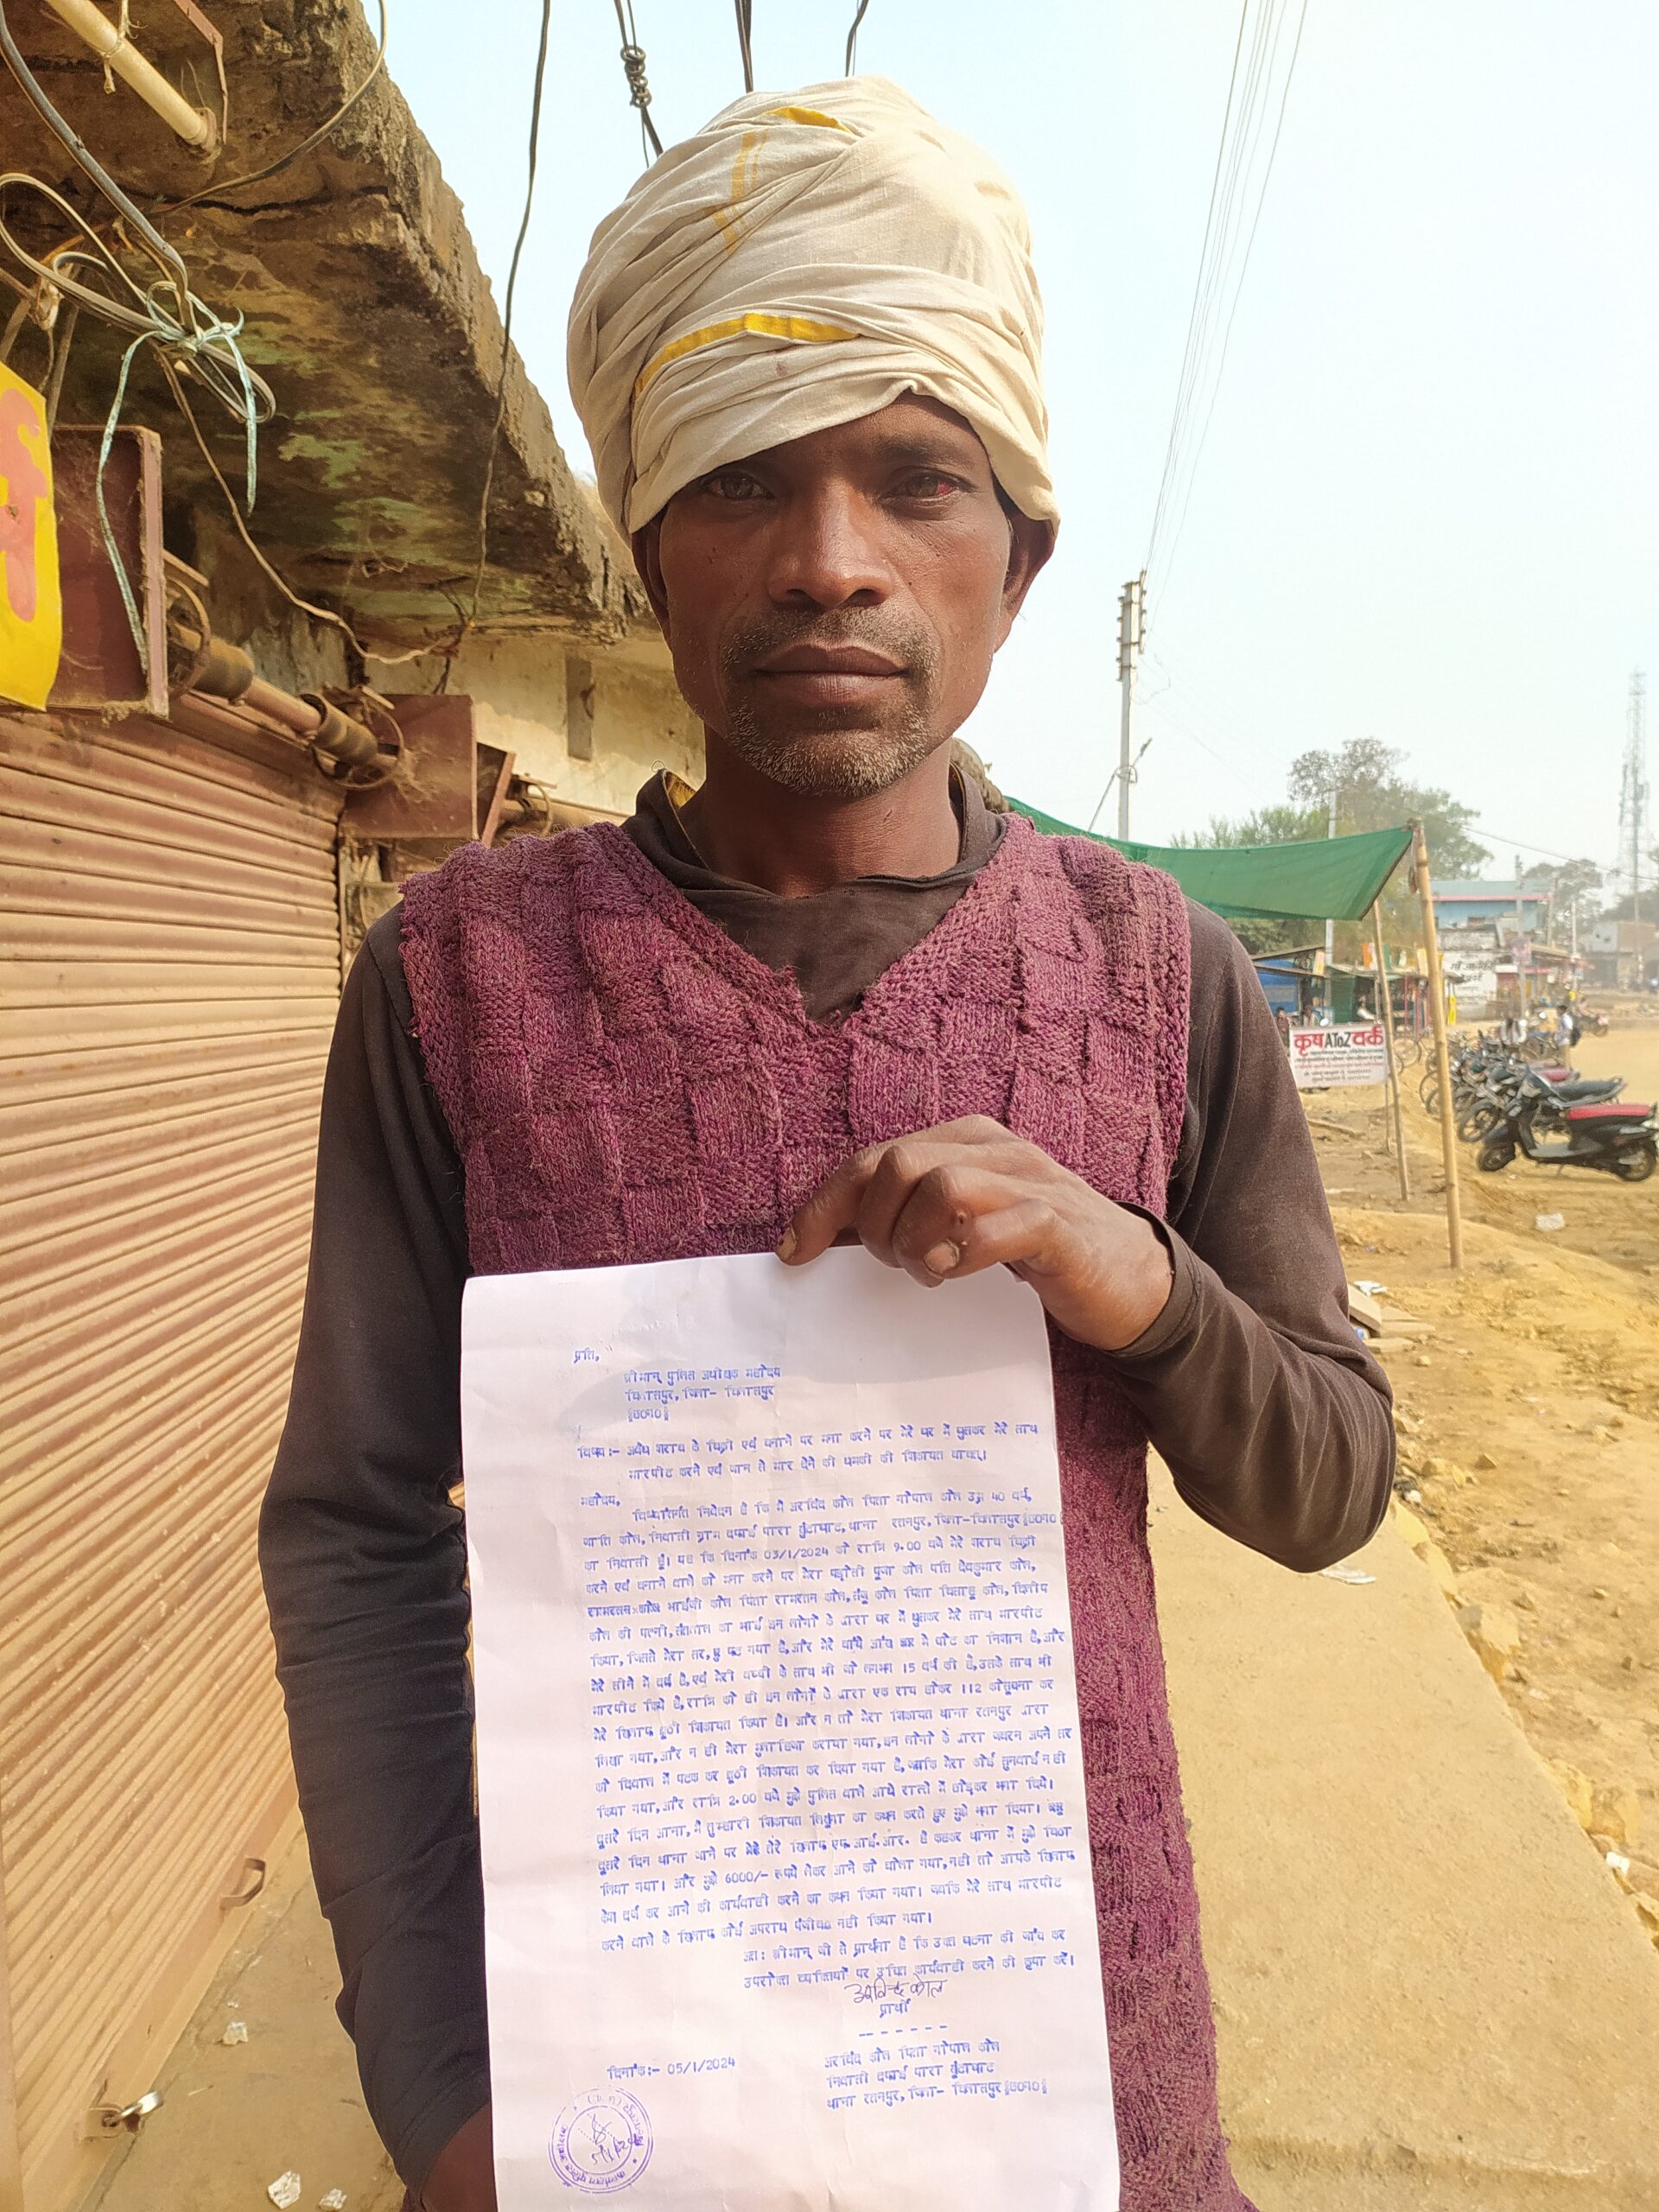 प्रति,
श्रीमान् पुलिस अधीक्षक महोदय
बिलासपुर, जिला- बिलासपुर
§छ0ग0§
विषय:- अवैध शराब के बिक्री एवं बनाने पर मना करने पर मेरे घर में घुसकर मेरे साथ
मारपीट करने एवं जान से मार देने की धमकी की शिकायत बाबत्।
महोदय,
विषयांतर्गत निवेदन है कि मैं अरविंद कोल पिता गोपाल कोल उम्र 40 वर्ष,
जाति कोल, निवासी ग्राम पारा थाना रतनपुर, जिला-बिलासपुर§छ0ग0§
का निवासी हूँ। यह कि दिनांक 03/1/2024 को रात्रि 9.00 बजे मेरे शराब बिक्री
करने एवं बनाने वाले को मना करने पर मेरा पड़ोसी पूजा कोल पति देवकुमार कोल,
रामरतन कोल भाईजी कोल पिता रामरतन कोल, कोल पिता कोल, दिलीप
कोल की पत्नी, का भाई इन लोगों के द्वारा घर में घुसकर मेरे साथ मारपीट
किया, जिससे मेरा सर, फट गया है, और मेरे बांये में चोट का निशान है, और
मेरे सीने में दर्द है, एवं मेरी बच्ची के साथ भी जो लगभग 15 वर्ष की है, उसके साथ भी
मारपीट किये है, रात्रि को ही इन लोगों के द्वारा एक राय होकर 112 को सूचना कर
मेरे खिलाफ झूठी शिकायत किया है। और न तो मेरा शिकायत थाना रतनपुर द्वारा
लिखा गया, और न ही मेरा मुलाहिजा कराया गया, इन लोगों के द्वारा जबरन अपने सर
को दिवाल में पटक कर झूठी शिकायत कर दिया गया है, जबकि मेरा कोई सुनवाई नही
किया गया, और रात्रि 2.00 बजे मुझे पुलिस वाले आधे रास्ते में छोड़कर भगा दिये।
दूसरे दिन आना, मैं तुम्हारी शिकायत लिखूंगा का कथन करते हुए मुझे भगा दिया।
दूसरे दिन थाना जाने पर तेरे खिलाफ एफ.आई.आर. है कहकर थाना में मुझे बिठा
लिया गया। और मुझे 6000/- रूपये लेकर आने को बोला गया, नही तो आपके खिलाफ
केश दर्ज कर आगे की कार्यवाही करने का कथन किया गया। जबकि मेरे साथ मारपीट
करने वाले के खिलाफ कोई अपराध पंजीबद्ध नही किया गया।
अतः श्रीमान् जी से प्रार्थना है कि उक्त घटना की जांच कर
उपरोक्त व्यक्तियों पर उचित कार्यवाही करने की कृपा करें।
अरविन्द कोल
प्रार्थी
- - - - - -
दिनांक:- 05/1/2024
अरविंद कोल पिता गोपाल कोल
निवासी पारा
थाना रतनपुर, जिला- बिलासपुर§छ0ग0§
कृष AToZ वर्क